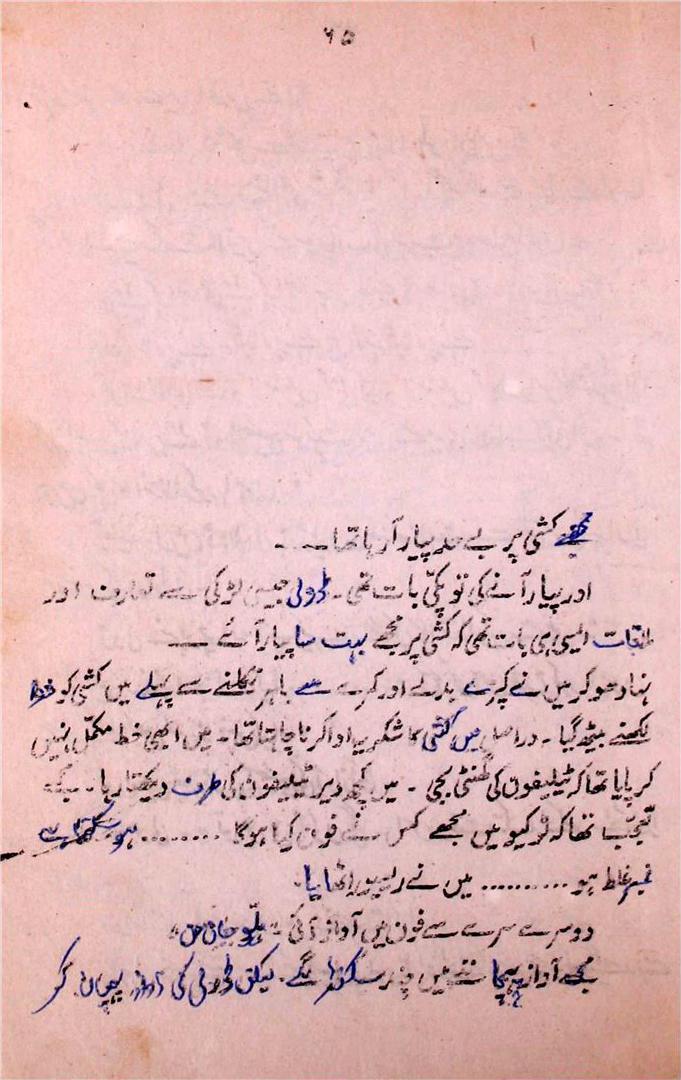 ۶۵
مجھے کشی پر بے حد پیار آ رہا تھا۔۔۔
اور پیار آنے کی تو پکّی بات تھی۔ ڈولی جیسی لڑکی سے تعارف اور
ملاقات ایسی ہی بات تھی کہ کشی پر مجھے بہت سا پیار آئے ــــ
نہا دھو کر میں نے کپڑے بدلے اور کمرے سے باہر نکلنے سے پہلے میں کشی کو خط
لکھنے بیٹھ گیا۔ دراصل میں کشی کا شکریہ ادا کرنا چاہتا تھا۔ میں ابھی خط مکمّل نہیں
کر پایا تھا کہ ٹیلیفون کی گھنٹی بجی ۔ میں کچھ دیر ٹیلیفون کی طرف دیکھتا رہا۔ مجھے
تعجّب تھا کہ ٹوکیو میں مجھے کس نے فون کیا ہوگا ........ ہو سکتا ہے
نمبر غلط ہو .......... میں نے رسیور اٹھایا۔
دوسرے سرے سے فون میں آواز آئی۔ ہلّو جان من،
مجھے آواز پہچاننے میں چند سکنڈ لگے۔ لیکن ڈولی کی آواز پہچان کر